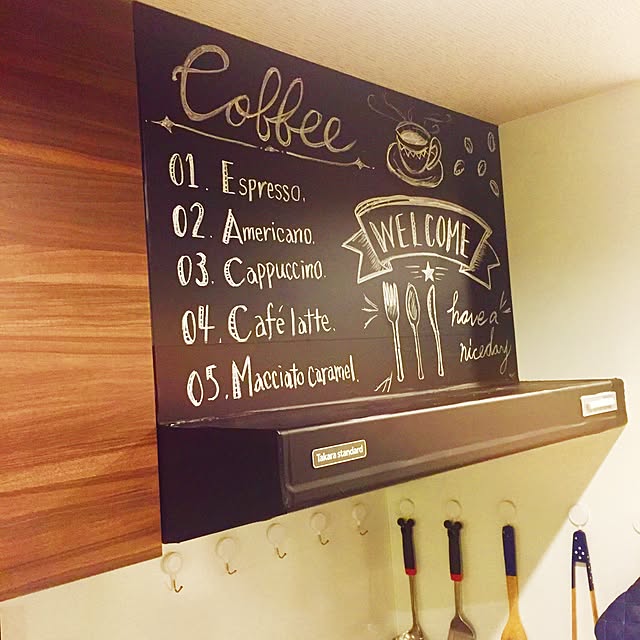 Coffee
01. Espresso.
02. Americano.
03. Cappuccino.
04. Café latte.
05. Macciato caramel.
WELCOME
have a
niceday
Takara standard